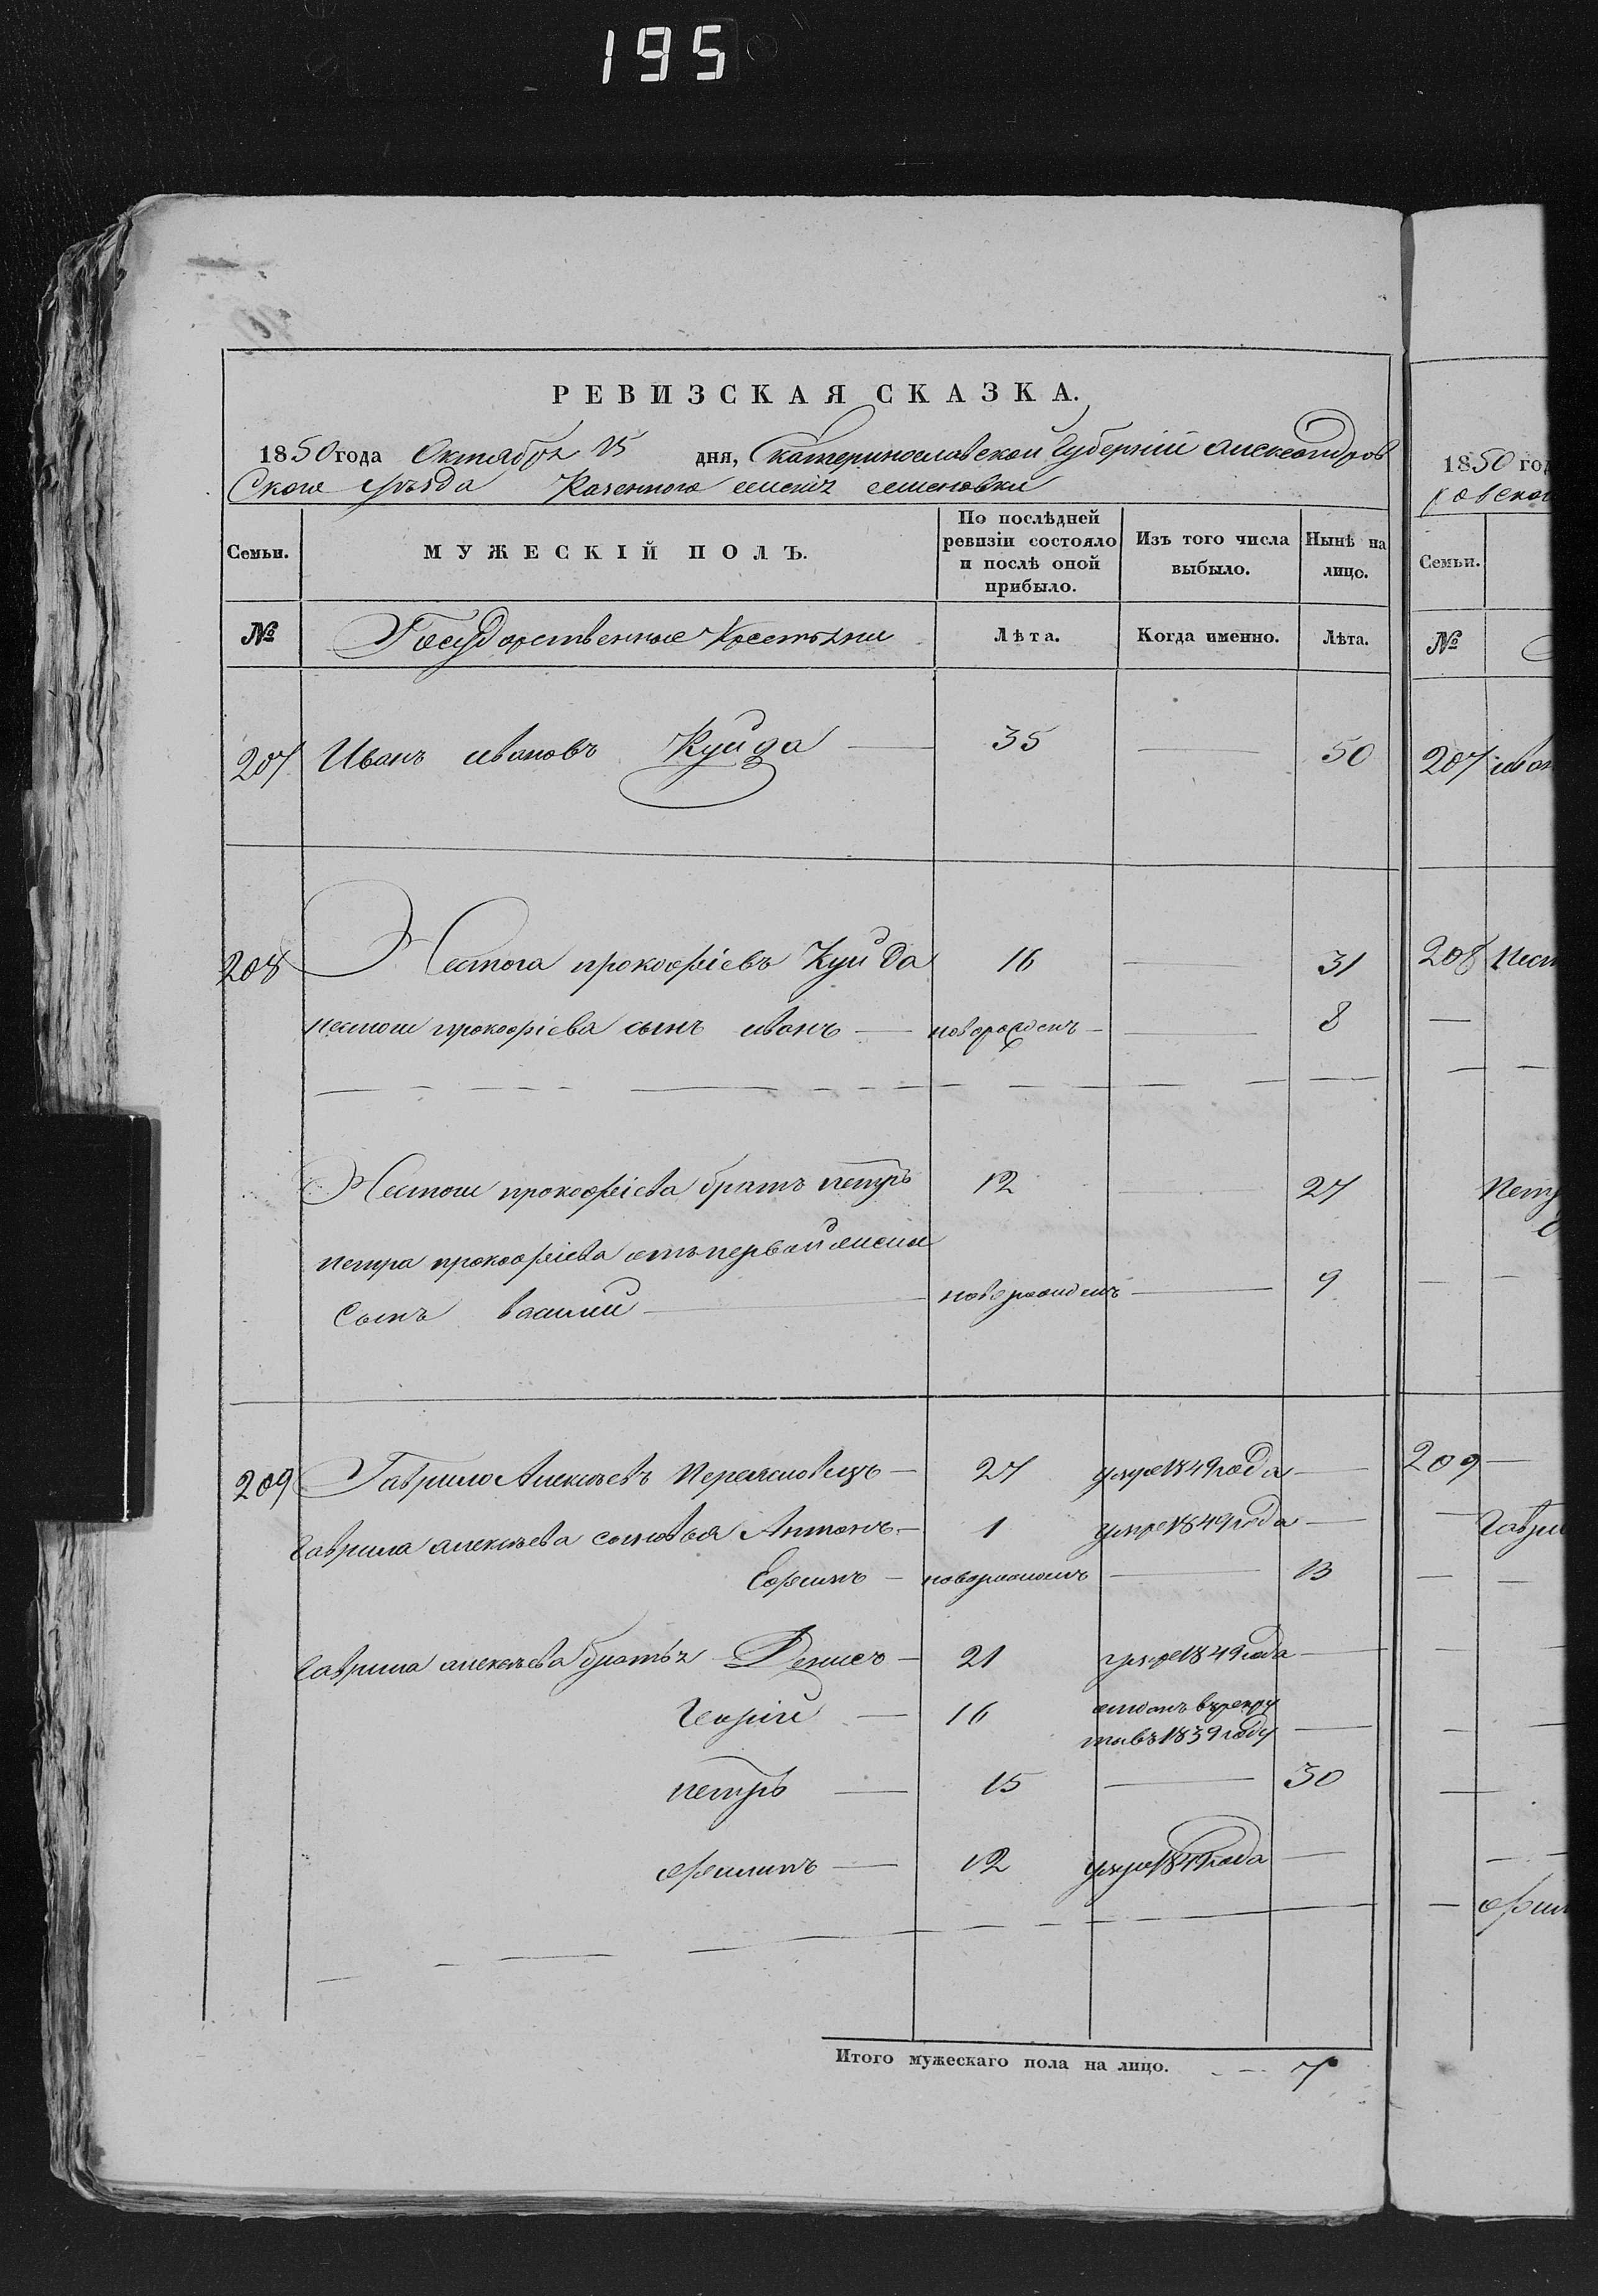 195
РЕВИЗСКАЯ СКАЗКА.
1850 года Октября 15 дня, Екатеринославской Губерніи александров
Ского уѣзда Казенного селенія семеновки
Семьи. МУЖЕСКІЙ ПОЛЪ. По послѣдней ревизіи состояло и послѣ оной прибыло. Изъ того числа выбыло. Нынѣ на лицо.
№ Государственные Крестьяне Лѣта. Когда именно. Лѣта.
207 Иванъ ивановъ Куйда — 35 — 50
208 Нестога прокофіевъ Куйда 16 — 31
нестоги прокофіева сынъ иванъ — новорожденъ — 8
Нестоги прокофіева братъ петръ 12 27
петра прокофіева отъ первой жены
Сынъ василий — новорожденъ — 9
209 Гаврило Алексѣевъ Переясловецъ — 27 умре 1849 года —
Гаврила алексѣева сыновья Антонъ — 1 умре 1849 года —
Ефимъ — новорожденъ — 13
Гаврила алексѣева братья Денисъ — 21 умре 1849 года —
Георгій — 16 отданъ в рекру
ты въ 1839 году —
петръ — 15 — 30
филипъ — 12 умре 1849 года —
Итого мужескаго пола на лицо. — 7
1850 год
ровского
Семьи.
№
207 иван
208 Нест
Петр
209 —
Гаври
фил